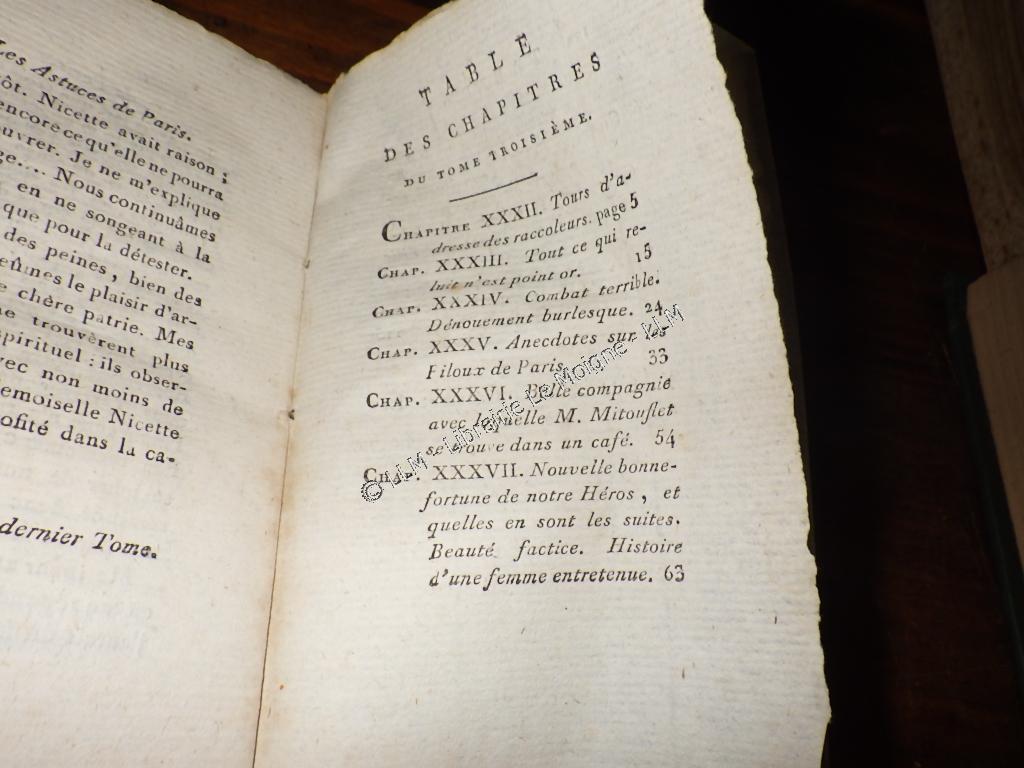 Les Astuces de Paris.
ôt. Nicette avait raison ;
encore ce qu'elle ne pourra
ouvrer. Je ne m'explique
ge.... Nous continuâmes
en ne songeant à la
que pour la détester.
des peines, bien des
eûmes le plaisir d'ar-
e chère patrie. Mes
ne trouvèrent plus
spirituel : ils obser-
vec non moins de
emoiselle Nicette
ofité dans la ca-
dernier Tome.
TABLE
DES CHAPITRES
DU TOME TROISIÈME.
CHAPITRE XXXII. Tours d'a-
dresse des raccoleurs. page 5
CHAP. XXXIII. Tout ce qui re-
luit n'est point or. 15
CHAP. XXXIV. Combat terrible.
Dénouement burlesque. 24
CHAP. XXXV. Anecdotes sur les
Filoux de Paris. 33
CHAP. XXXVI. Belle compagnie
avec laquelle M. Mitouflet
se trouve dans un café. 54
CHAP. XXXVII. Nouvelle bonne-
fortune de notre Héros, et
quelles en sont les suites.
Beauté factice. Histoire
d'une femme entretenue. 63
© LLM - Librairie Le Moigne - LLM